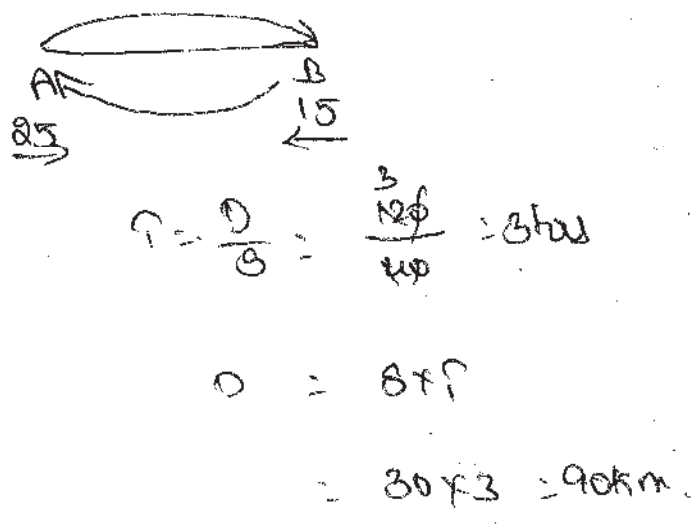 A B
25 15
T = D/S = 120/40 = 3 hrs
3
D = S × T
= 30 × 3 = 90km.